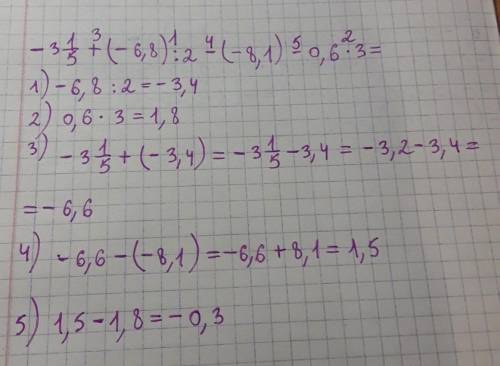 -3 1/5 +³ (-6,8) :¹ 2 -⁴ (-8,1) -⁵ 0,6 ·² 3 =
1) -6,8 : 2 = -3,4
2) 0,6 · 3 = 1,8
3) -3 1/5 + (-3,4) = -3 1/5 - 3,4 = -3,2 - 3,4 =
= -6,6
4) -6,6 - (-8,1) = -6,6 + 8,1 = 1,5
5) 1,5 - 1,8 = -0,3